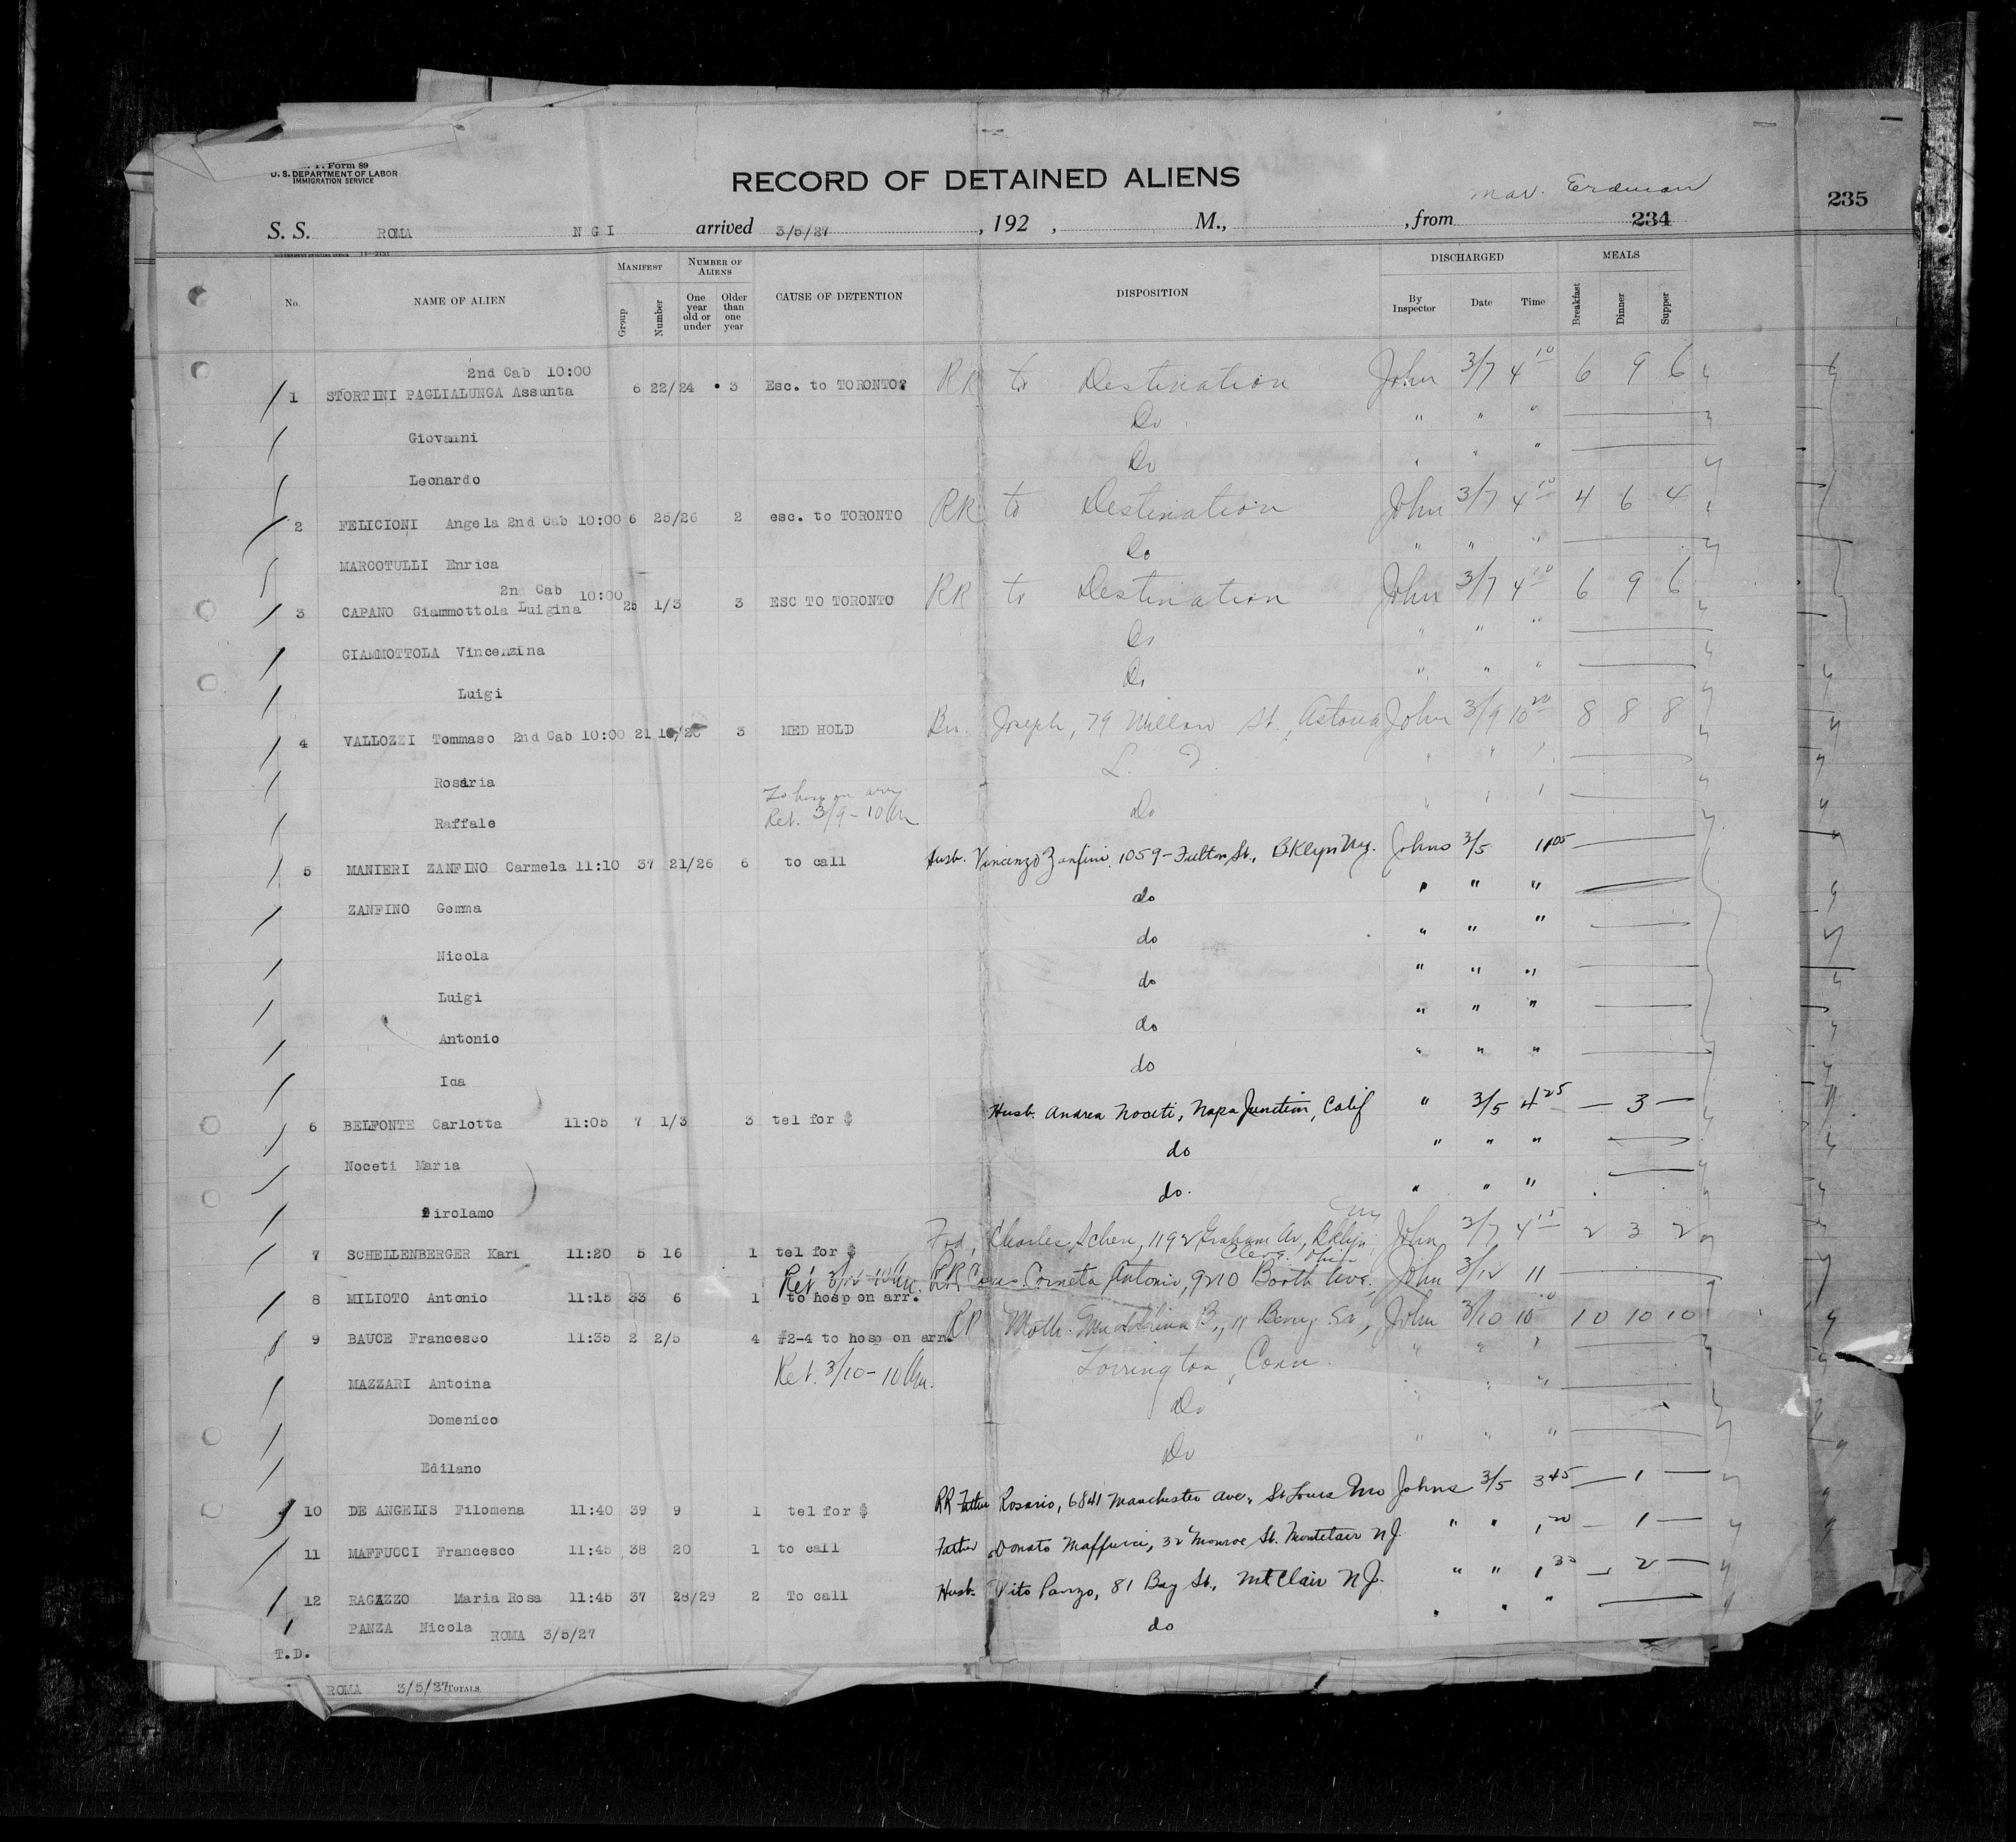 Form 89
U. S. DEPARTMENT OF LABOR
IMMIGRATION SERVICE
RECORD OF DETAINED ALIENS
Mar. Erdman
235
S. S. ROMA N G I arrived 3/5/27, 192 , M., , from 234
No.
NAME OF ALIEN
MANIFEST
Group
Number
NUMBER OF ALIENS
One year old or under
Older than one year
CAUSE OF DETENTION
DISPOSITION
DISCHARGED
By Inspector
Date
Time
MEALS
Breakfast
Dinner
Supper
2nd Cab 10:00
1 STORTINI PAGLIALUNGA Assunta 6 22/24 3 Esc. to TORONTO? RR to Destination John 3/7 4 10 6 9 6
Giovanni Do " " "
Leonardo Do " " "
2 FELICIONI Angela 2nd Cab 10:00 6 25/26 2 esc. to TORONTO RR to Destination John 3/7 4 10 4 6 4
MARCOTULLI Enrica Do " " "
2n Cab 10:00
3 CAPANO Giammottola Luigina 25 1/3 3 ESC TO TORONTO RR to Destination John 3/7 4 10 6 9 6
GIAMMOTTOLA Vincenzina Do " " "
Luigi Do " " "
4 VALLOZZI Tommaso 2nd Cab 10:00 21 3 MED HOLD Br. Joseph, 79 Willow St., Astoria John 3/9 10 20 8 8 8
Rosaria L. I. " " "
To hosp on arr
Raffale Ret. 3/9 - 10 Am Do " " "
5 MANIERI ZANFINO Carmela 11:10 37 21/26 6 to call Husb. Vincenzo Zanfini 1059 - Fulton St., BKlyn Ny. Johns 3/5 11 05
ZANFINO Gemma do " " "
Nicola do " " "
Luigi do " " "
Antonio do " " "
Ida do " " "
6 BELFONTE Carlotta 11:05 7 1/3 3 tel for $ Husb. Andrea Noceti, Napa Junction, Calif " 3/5 4 25 — 3 —
Noceti Maria do " " "
Girolamo do. " " "
7 SCHELLENBERGER Karl 11:20 5 16 1 tel for $ Frd, Charles Scherr, 1192 Graham Av, Bklyn, Ny John 3/7 4 15 2 3 2
Ret 3/12 - 10 Am. Cleve. Ohio
8 MILIOTO Antonio 11:15 33 6 1 to hosp on arr. RR Cous. Corneta Antonio, 9210 Booth Ave. John 3/12 11
9 BAUCE Francesco 11:35 2 2/5 4 #2-4 to hosp on arr. RR Moth. B., 11 Berry St, John 3/10 10 10 10 10
MAZZARI Antoina Ret. 3/10 - 10 Am. Torrington, Conn. " " "
Domenico Do " " "
Edilano Do " " "
10 DE ANGELIS Filomena 11:40 39 9 1 tel for $ RR Father Rosario, 6841 Manchester Ave, St Louis Mo Johns 3/5 3 45 — 1 —
11 MAFFUCCI Francesco 11:45 38 20 1 to call Father Donato Maffucci, 32 Monroe St. Montclair N J. " " 1 20 — 1 —
12 RAGAZZO Maria Rosa 11:45 37 28/29 2 To call Husb. Vito Panzo, 81 Bay St., Mt Clair N J. " " 1 30 — 2 —
PANZA Nicola ROMA 3/5/27 do " " "
T.D.
ROMA 3/5/27 TOTALS.